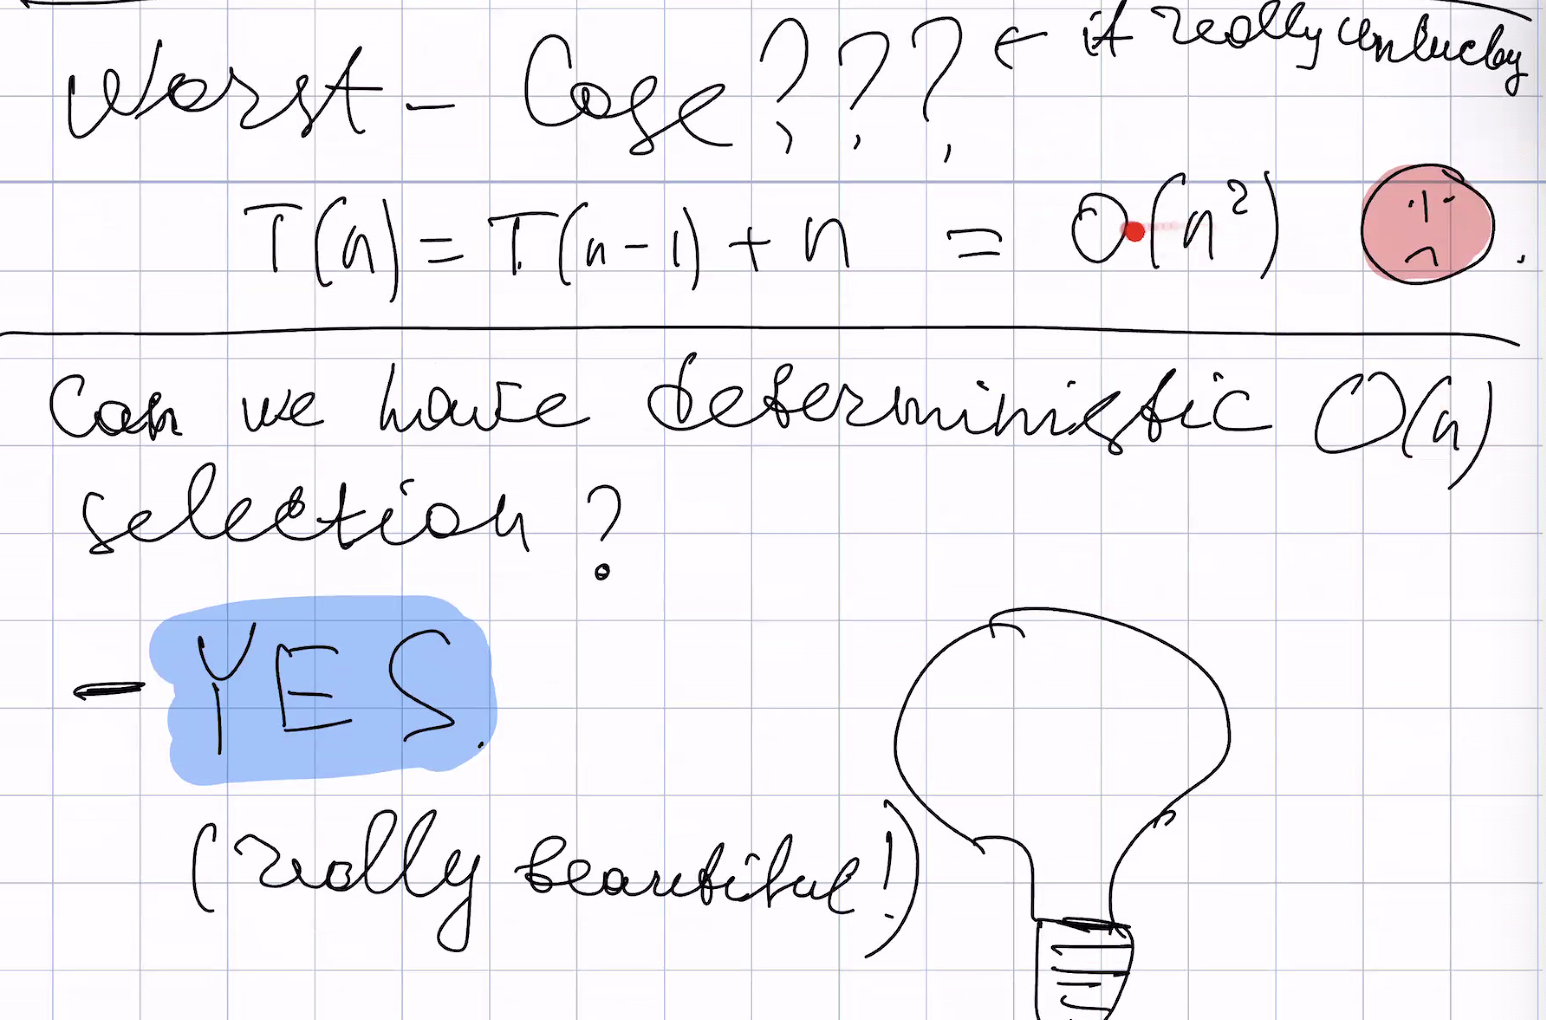 Worst - Case ??? ← if really unlucky
T(n) = T(n-1) + n = O(n²)
Can we have deterministic O(n)
selection?
- YES.
(really beautiful!)